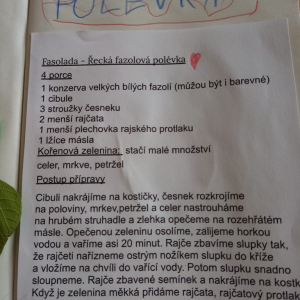 POLÉVKA
Fasolada - Řecká fazolová polévka
4 porce
1 konzerva velkých bílých fazolí (můžou být i barevné)
1 cibule
3 stroužky česneku
2 menší rajčata
1 menší plechovka rajského protlaku
1 lžíce másla
Kořenová zelenina: stačí malé množství
celer, mrkve, petržel
Postup přípravy
Cibuli nakrájíme na kostičky, česnek rozkrojíme
na poloviny, mrkev,petržel a celer nastrouháme
na hrubém struhadle a zlehka opečeme na rozehřátém
másle. Opečenou zeleninu osolíme, zalijeme horkou
vodou a vaříme asi 20 minut. Rajče zbavíme slupky tak,
že rajčeti nařízneme ostrým nožíkem slupku do kříže
a vložíme na chvíli do vařící vody. Potom slupku snadno
sloupneme. Rajče zbavené semínek a nakrájíme na kostk
Když je zelenina měkká přidáme rajčata, rajčatový protl